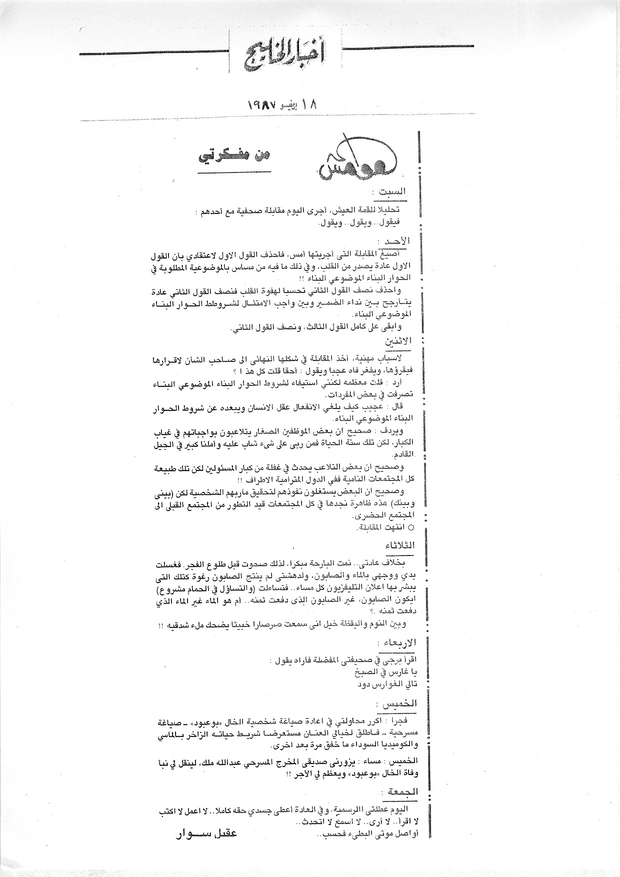 أخبار الخليج
١٨ يونيو ١٩٨٧
هوامش
من مفكرتي
السبت :
تحليلا للقمة العيش، أجرى اليوم مقابلة صحفية مع أحدهم :
فيقول.. ويقول.. ويقول.
الأحد :
اصيغ المقابلة التى أجريتها أمس، فاحذف القول الاول لاعتقادي بان القول
الاول عادة يصدر من القلب، وفي ذلك ما فيه من مساس بالموضوعية المطلوبة في
الحوار البناء الموضوعي البناء !!
واحذف نصف القول الثاني تحسبا لهفوة القلب فنصف القول الثاني عادة
يتأرجح بين نداء الضمير وبين واجب الامتثال لشروطط الحوار البناء
الموضوعي البناء.
وابقى على كامل القول الثالث، ونصف القول الثاني.
الاثنين
لاسباب مهنية، أخذ المقابلة في شكلها النهائى الى صاحب الشان لاقرارها
فيقرؤها، ويفغر فاه عجبا ويقول : أحقا قلت كل هذا ؟
أرد : قلت معظمه لكننى استيفاء لشروط الحوار البناء الموضوعي البناء
تصرفت في بعض المفردات.
قال : عجيب كيف يلغي الانفعال عقل الانسان ويبعده عن شروط الحوار
البناء الموضوعي البناء.
ويردف : صحيح ان بعض الموظفين الصغار يتلاعبون بواجباتهم في غياب
الكبار، لكن تلك سنة الحياة فمن ربى على شىء شاب عليه وأملنا كبير في الجيل
القادم.
وصحيح ان بعض التلاعب يحدث في غفلة من كبار المسئولين لكن تلك طبيعة
كل المجتمعات النامية ففي الدول المترامية الاطراف !!
وصحيح ان البعض يستغلون نفوذهم لتحقيق ماربهم الشخصية لكن (بينى
وبينك) هذه ظاهرة نجدها في كل المجتمعات قيد التطور من المجتمع القبلى الى
المجتمع الحضرى.
○ انتهت المقابلة.
الثلاثاء
بخلاف عادتى.. نمت البارحة مبكرا، لذلك صحوت قبل طلوع الفجر. فغسلت
يدي ووجهي بالماء والصابون، ولدهشتى لم ينتج الصابون رغوة كتلك التى
يبشر بها اعلان التليفزيون كل مساء.. فتساءلت (والتساؤل في الحمام مشروع)
ايكون الصابون، غير الصابون الذى دفعت ثمنه.. أم هو الماء غير الماء الذي
دفعت ثمنه .؟
وبين النوم واليقظة خيل انى سمعت صرصارا خبيثا يضحك ملء شدقيه !!
الاربعاء :
اقرأ برجى في صحيفتى المفضلة فاراه يقول :
يا غارس في الصبخ
تالي الغوارس دود
الخميس :
فجرا : اكرر محاولتي في اعادة صياغة شخصية الخال «بوعبود» ـ صياغة
مسرحية ـ فاطلق لخيالي العنان مستعرضا شريط حياته الزاخر بالماسي
والكوميديا السوداء ما خفق مرة بعد اخرى.
الخميس : مساء : يزورنى صديقى المخرج المسرحي عبدالله ملك، لينقل لي نبا
وفاة الخال «بوعبود» ويعظم لي الأجر !!
الجمعة :
اليوم عطلتي الرسمية، وفي العادة أعطى جسدي حقه كاملا.. لا اعمل لا اكتب
لا اقرأ.. لا أرى.. لا اسمع لا اتحدث..
أواصل موتى البطيء فحسب..
عقيل سوار